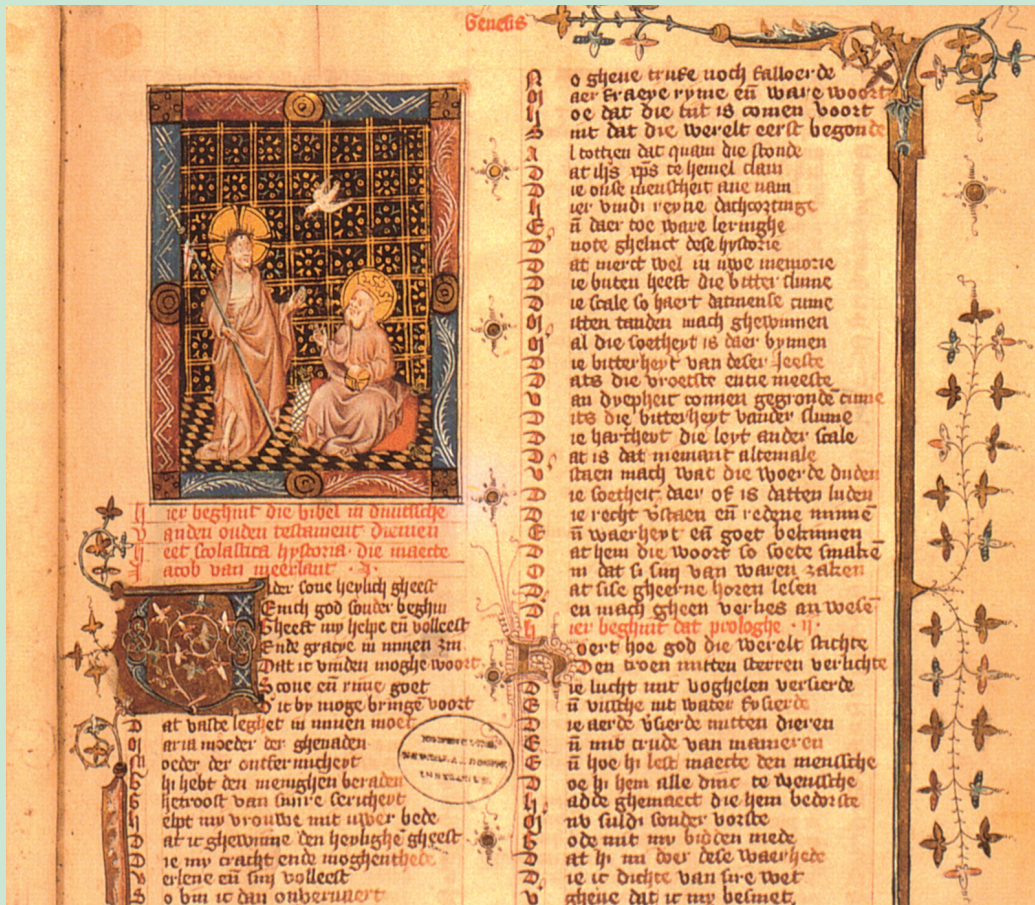 Genesis
12
Hier beghint die bibel in duutsche
vanden ouden testament diemen
heet scolastica hystoria · die maecte
Jacob van meerlant · J·
Vader sone heylich gheest
Enich god sonder beghin
Gheeft my helpe en̄ volleest
Ende gracye in minen zin
Dat ic vinden moghe woort
Scone en̄ rime goet
Dit by moge bringē voort
Dat vaste leghet in minen moet
Maria moeder der ghenaden
Moeder der ontfermicheyt
Ghi hebt den menighen beraden
Ghetroost van sinre sericheyt
Helpt my vrouwe mit uwer bede
Dat ic ghewinne den heylighē gheest
Die my cracht ende moghenthede
Verlene en̄ sijn volleest
So bin ic dan onvervaert
No gheve trufe noch falloerde
Mer fraeye ryme en̄ ware woort
Hoe dat die tiit is comen voort
Sint dat die werelt eerst begonde
Al tottien dat quam die stonde
Dat ihs xp̄s te hemel clam
Die onse menscheit ane nam
Hier vindi reyne dachcortinge
En̄ daer toe ware leringhe
Note ghelijct dese hystorie
Dat merct wel in uwe memorie
Die buten heeft die bitter slume
Die scale so haert datmense cume
Mitten tanden mach ghewinnen
Mal die soetheyt is daer bynnen
Die bitterheyt van deser Jeeste
Dats die vroetste entie meeste
van dyepheit connen gegrondē cume
Dits die bitterheyt vander slume
Die hartheyt die leyt ander scale
Dat is dat niemant altemale
verstaen mach wat die woerde duden
Die soetheit daer of is datten luden
Die recht v̄staen en̄ redene minnē
En̄ waerheyt en̄ goet bekinnen
Dat hem die woort so soete smakē
Om dat si sijn van waren zaken
Dat sise gheerne horen lesen
Den mach gheen verlies an wesē
Hier beghint dat prologhe · ij·
Hoert hoe god die werelt stichte
Den troen mitten sterren verlichte
Die lucht mit voghelen versierde
En̄ vissche mit water
Die aerde v̄sierde mitten dieren
En̄ mit crude van manieren
En̄ hoe hi lest maecte den mensche
Hoe hi hem alle dinc te wensche
Hadde ghemaect die hem bedorste
Nv suldi sonder vorste
Gode mit my bidden mede
Dat hi mi doer dese waerhede
Die ic dichte van sire wet
gheve dat ic my besmet